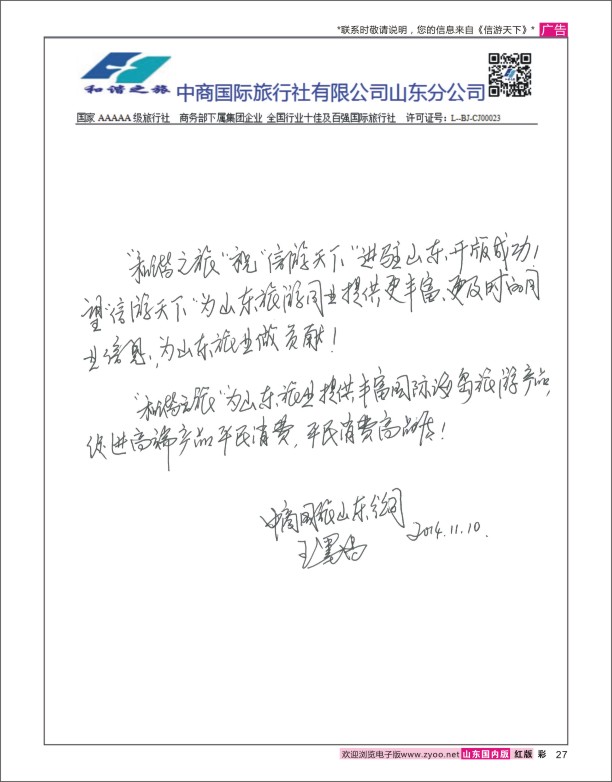 *联系时敬请说明，您的信息来自《信游天下》* 广告
和谐之旅 中商国际旅行社有限公司山东分公司
国家 AAAAA 级旅行社 商务部下属集团企业 全国行业十佳及百强国际旅行社 许可证号：L--BJ-CJ00023
“和谐之旅”祝“信游天下”进驻山东、开版成功！
望“信游天下”为山东旅游同业提供更丰富、更及时的同
业信息，为山东旅业做贡献！
“和谐之旅”为山东旅业提供丰富国际海岛旅游产品，
促进高端产品平民消费，平民消费高品质！
中商国旅山东分公司
王 2014.11.10.
欢迎浏览电子版www.zyoo.net 山东国内版 红版 彩 27